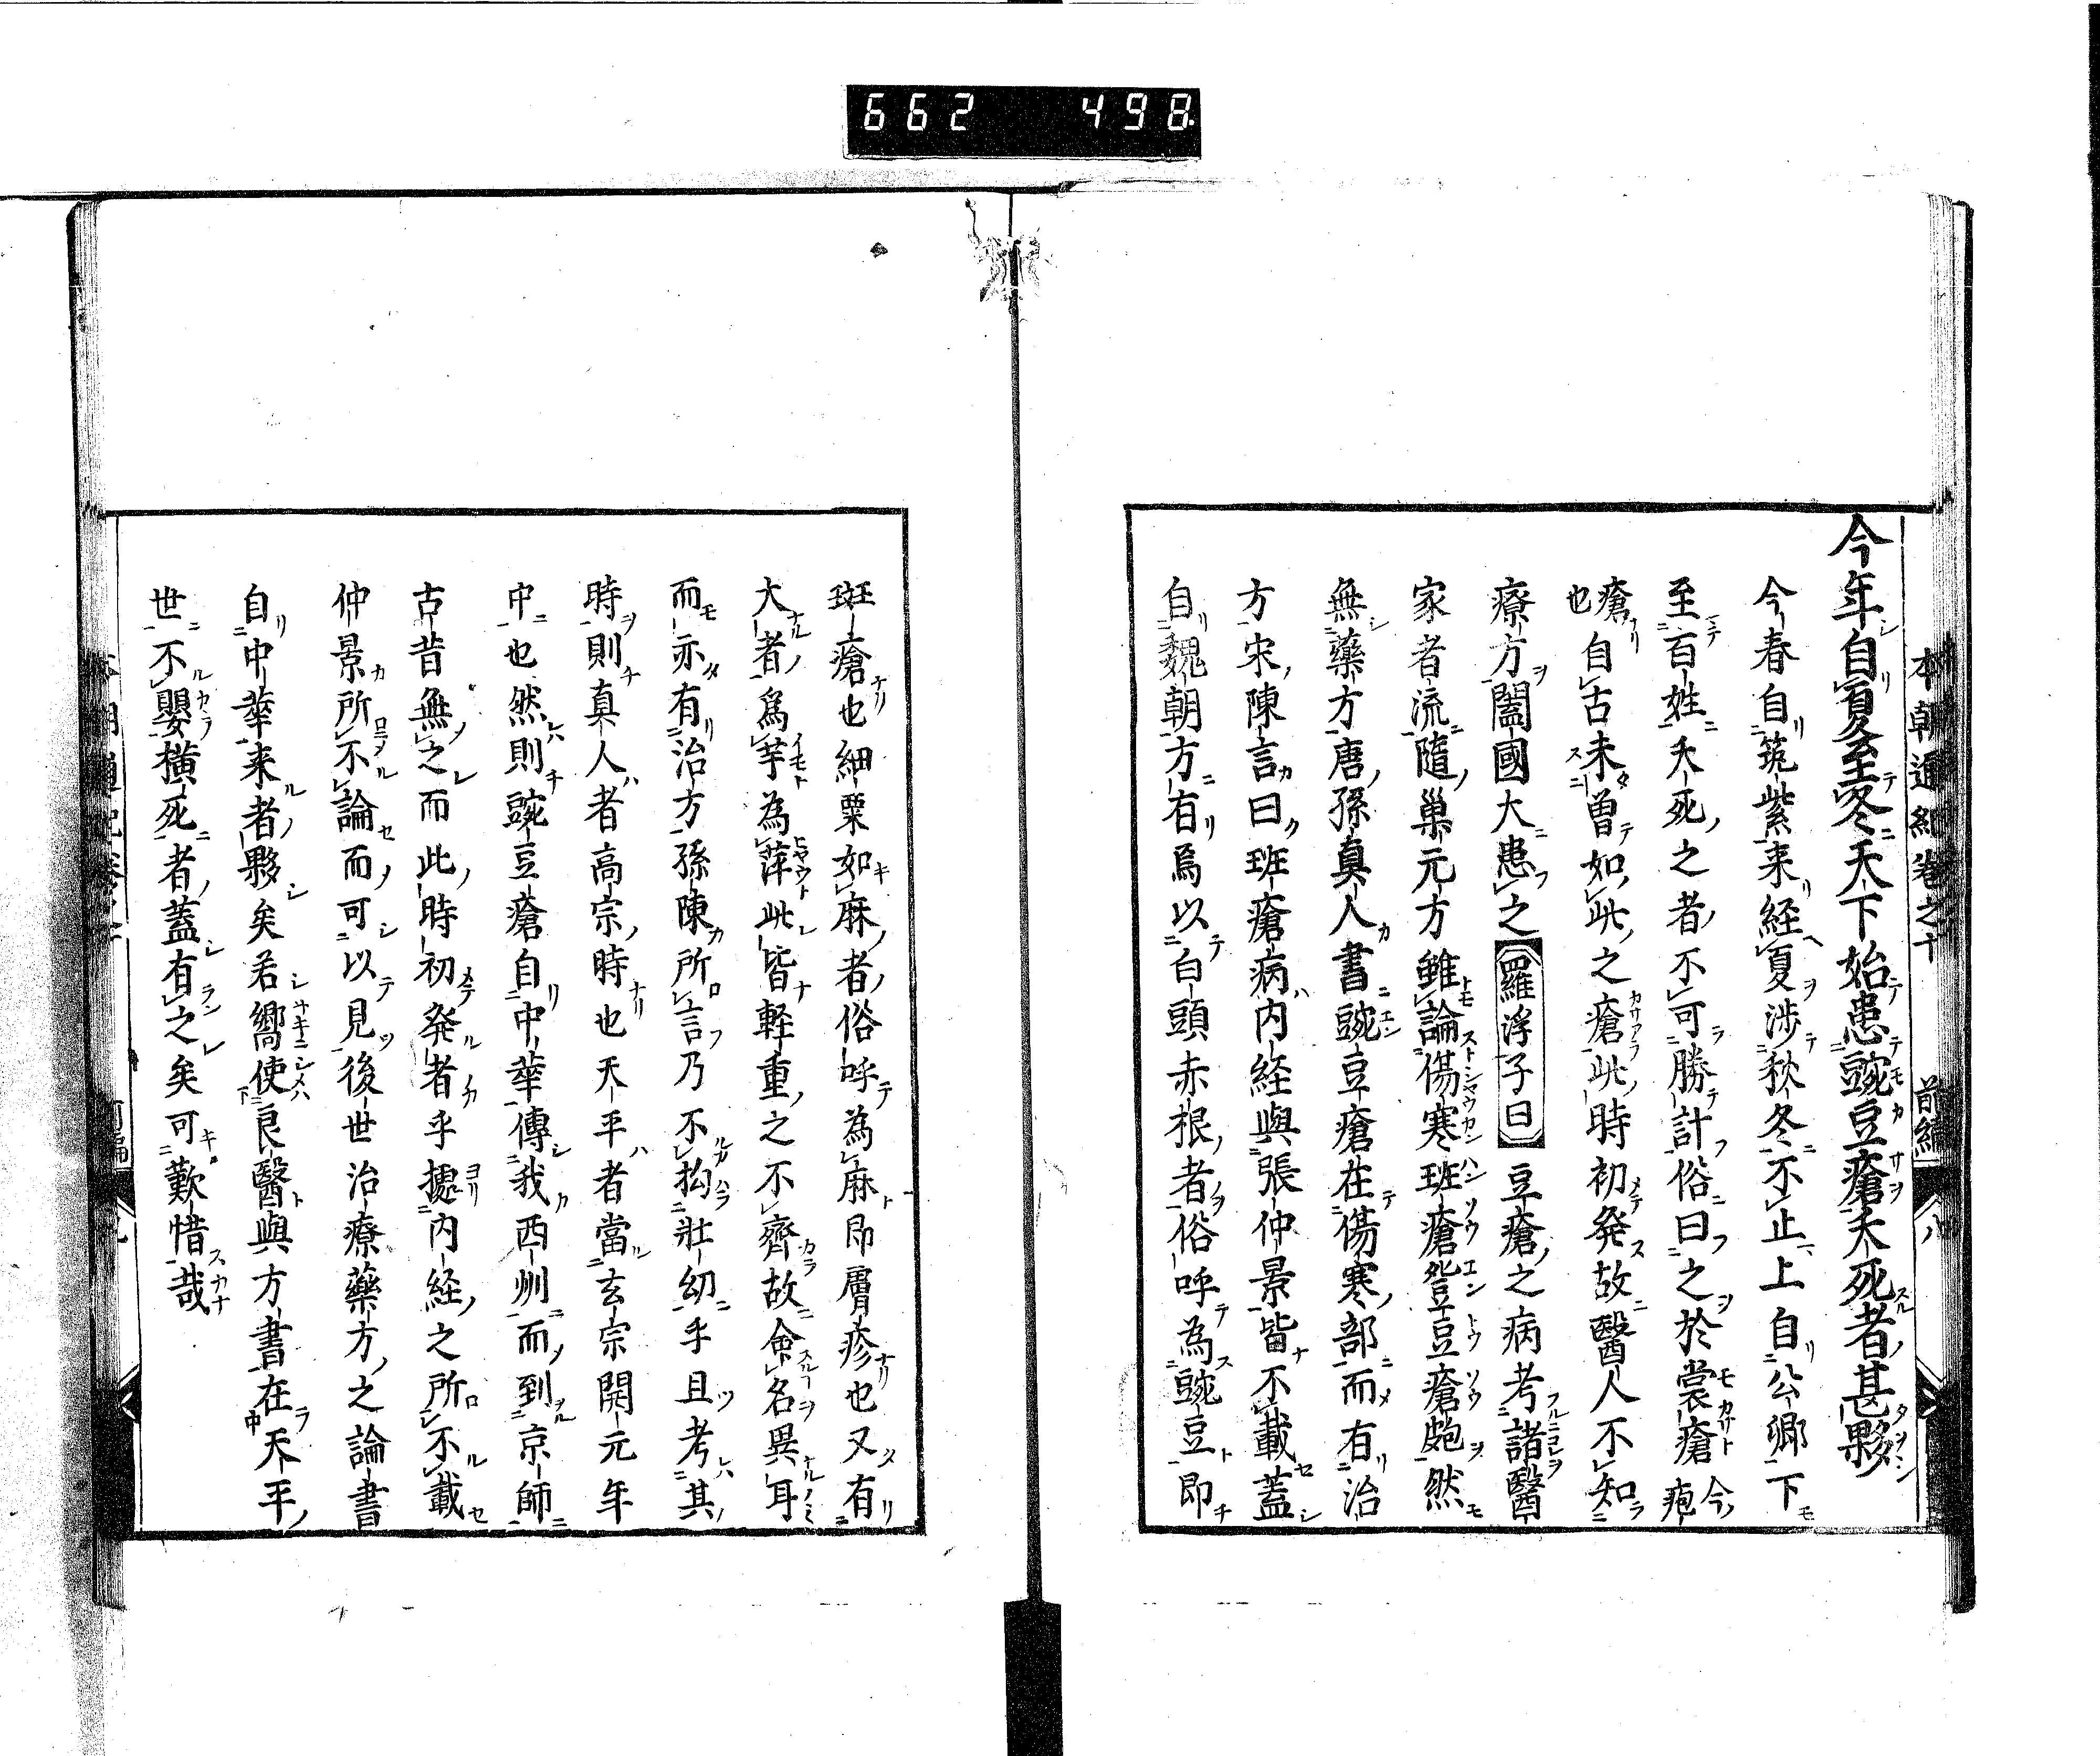 662 498
本朝通紀卷之十 前編 八
今年自夏至冬天下始患豌豆瘡夭死者甚夥
今春自筑紫来経夏渉秋冬不止上自公卿下
至百姓夭死之者不可勝計俗曰之於裳瘡今疱
瘡也自古未曾如此之瘡此時初発故醫人不知
療方闔國大患之羅浮子曰豆瘡之病考諸醫
家者流隨巢元方雖論傷寒班瘡豋豆瘡皰然
無藥方唐孫真人書豌豆瘡在傷寒部而有治
方宋陳言曰班瘡病内経與張仲景皆不載蓋
自魏朝方有爲以白頭赤根者俗呼為豌豆即
斑瘡也細粟如麻者俗呼為麻即膚疹也又有
大者爲芋為萍此皆軽重之不齊故命名異耳
而亦有治方孫陳所言乃不拘壯幼乎且考其
時則真人者高宗時也天平者當玄宗開元年
中也然則豌豆瘡自中華傳我西州而到京師
古昔無之而此時初発者乎據内経之所不載
仲景所不論而可以見後世治療藥方之論書
自中華来者夥矣若嚮使良醫與方書在天平
世不嬰横死者蓋有之矣可歎惜哉